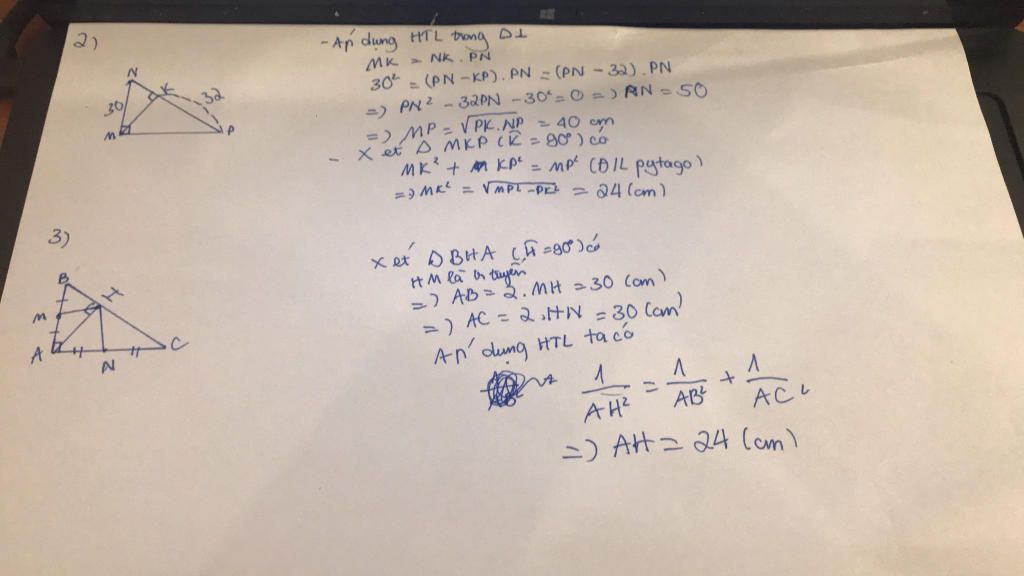 2)
- Áp dụng HTL trong Δ⊥
MK = NK.PN
30² = (PN - KP).PN = (PN - 32).PN
=> PN² - 32PN - 30² = 0 => PN = 50
=> MP = √PK.NP = 40 cm
- Xét Δ MKP (K̂ = 90°) có
MK² + KP² = MP² (Đ/L pytago)
=> MK² = √MP² - PK² = 24 (cm)
N
K
30
32
M
P
3)
Xét Δ BHA (Ĥ = 90°) có
HM là tr tuyến
=> AB = 2.MH = 30 (cm)
=> AC = 2.HN = 30 (cm)
Áp dụng HTL ta có
1/AH² = 1/AB² + 1/AC²
=> AH = 24 (cm)
B
M
A
N
C